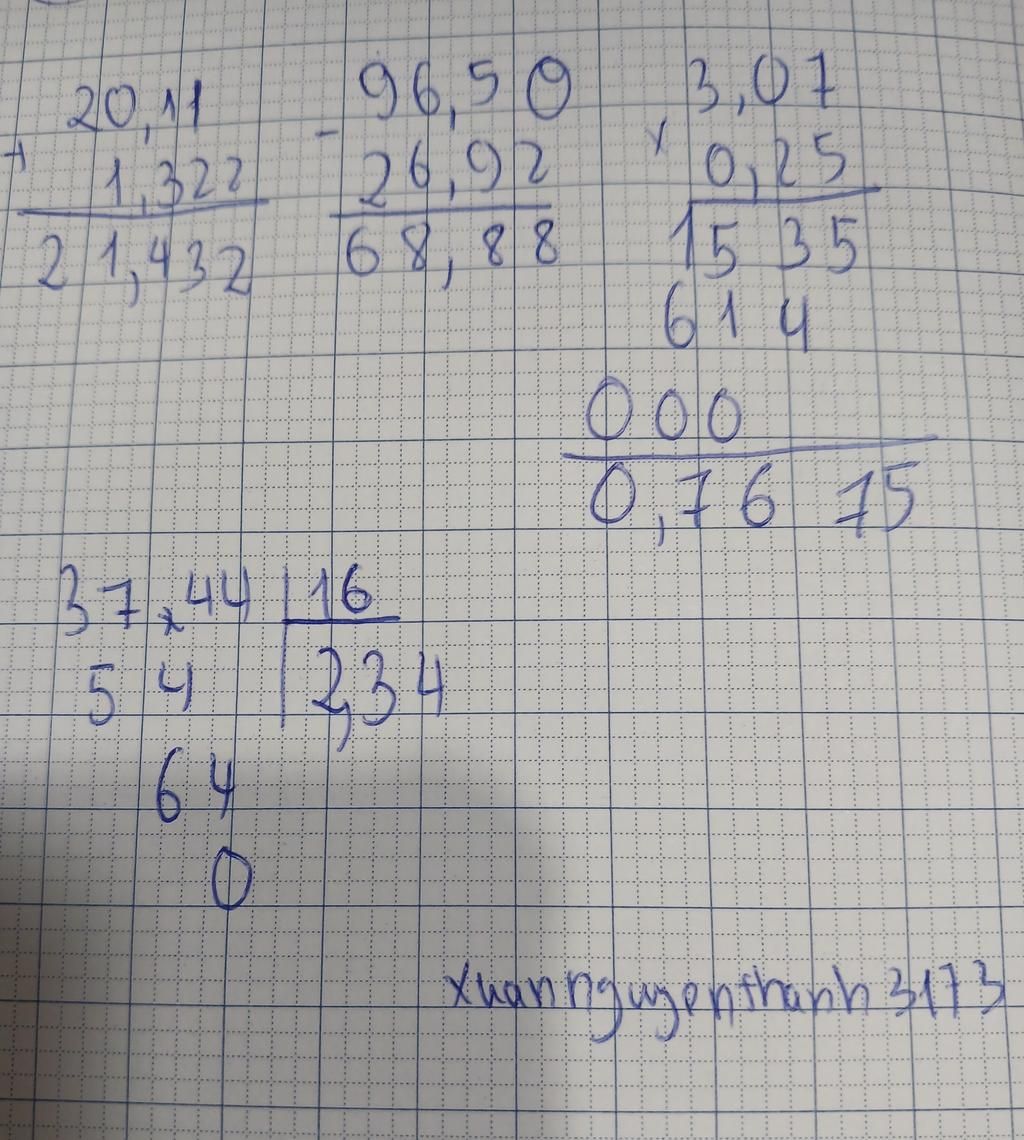 20,11
+ 1,322
21,432
96,50
- 26,92
68,88
3,07
x 0,25
1535
614
000
0,7675
37,44 | 16
54 | 2,34
64
0
xuannguyenthanh3173